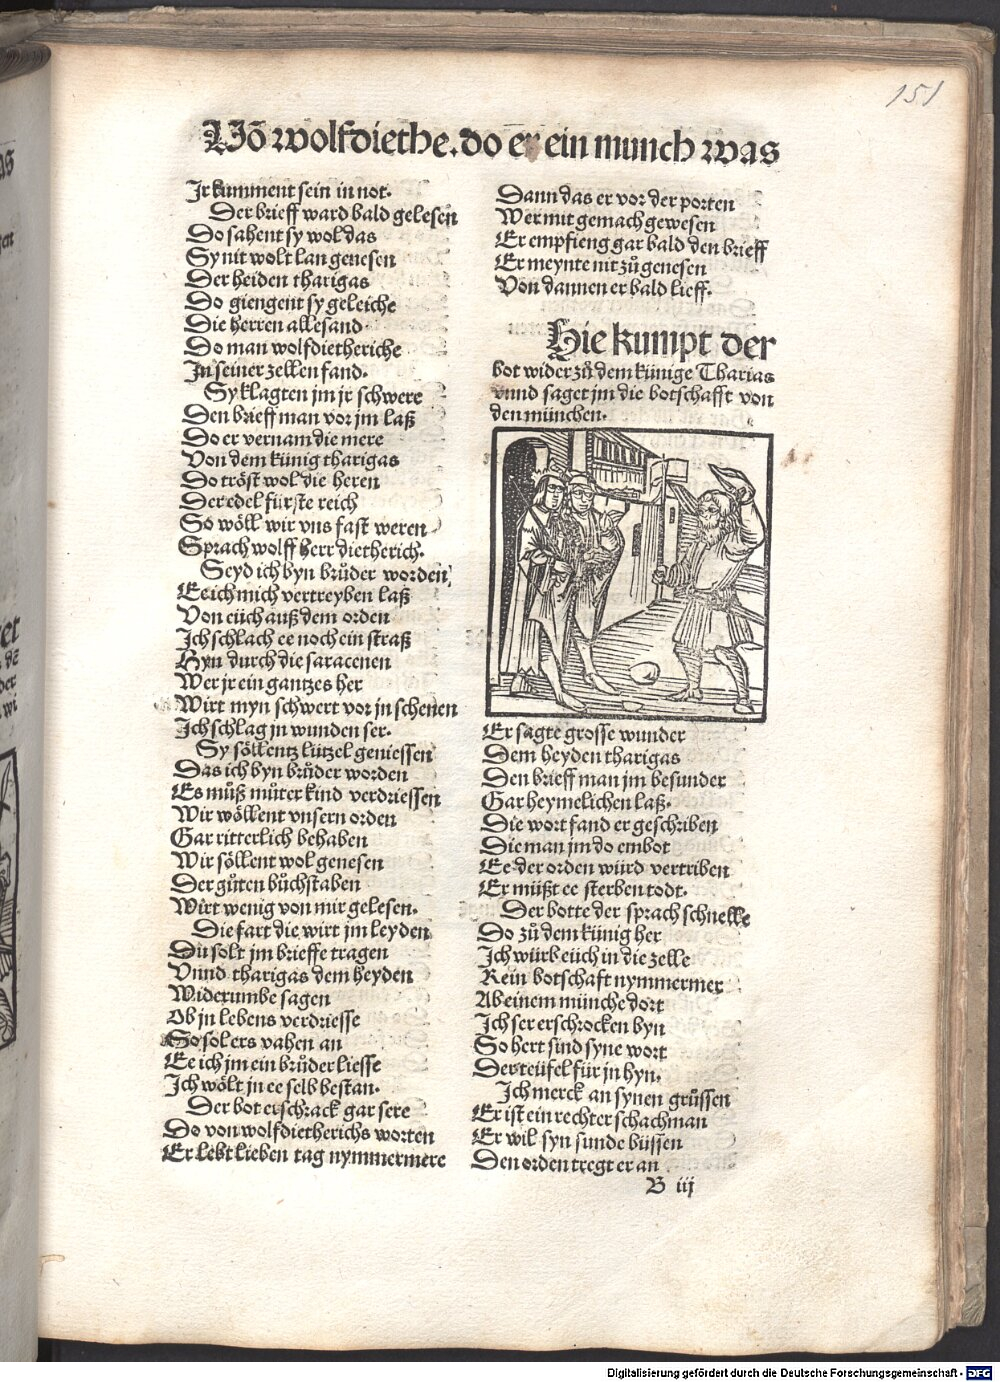 151
Vō wolfdiethe. do er ein munch was
Ir kumment sein in not.
Der brieff ward bald gelesen
Do sahent sy wol das
Sy nit wolt lan genesen
Der heiden tharigas
Do giengent sy geleiche
Die herren allesand
Do man wolfdietheriche
In seiner zellen fand.
Sy klagten jm jr schwere
Den brieff man vor jm laß
Do er vernam die mere
Von dem künig tharigas
Do tröst wol die heren
Der edel fürste reich
So wöll wir vns fast weren
Sprach wolff herr dietherich.
Seyd ich byn brůder worden
Ee ich mich vertreyben laß
Von eüch auß dem orden
Ich schlach ee noch ein straß
Hyn durch die saracenen
Wer jr ein gantzes her
Wirt myn schwert vor jn schenen
Ich schlag jn wunden ser.
Sy söllentz lützel geniessen
Das ich byn brůder worden
Es můß můter kind verdriessen
Wir wöllent vnsern orden
Gar ritterlich behaben
Wir söllent wol genesen
Der gůten bůchstaben
Wirt wenig von mir gelesen.
Die fart die wirt jm leyden
Du solt jm brieffe tragen
Vnnd tharigas dem heyden
Widerumbe sagen
Ob jn lebens verdriesse
So sol ers vahen an
Ee ich jm ein brůder liesse
Ich wölt jn ee selb bestan.
Der bot erschrack gar sere
Do von wolfdietherichs worten
Er lebt lieben tag nymmermere
Dann das er vor der porten
Wer mit gemach gewesen
Er empfieng gar bald den brieff
Er meynte nit zů genesen
Von dannen er bald lieff.
Hie kumpt der
bot wider zů dem künige Tharias
vnnd saget jm die botschafft von
den münchen.
Er sagte grosse wunder
Dem heyden tharigas
Den brieff man jm besunder
Gar heymelichen laß.
Die wort fand er geschriben
Die man jm do embot
Ee der orden würd vertriben
Er müßt ee sterben todt.
Der botte der sprach schnelle
Do zů dem künig her
Ich würb eüch in die zelle
Kein botschaft nymmermer
Ab einem münche dort
Ich ser erschrocken byn
So hert sind syne wort
Der teüfel für jn hyn.
Ich merck an synen grüssen
Er ist ein rechter schachman
Er wil syn sunde büssen
Den orden tregt er an
B iij
Digitalisierung gefördert durch die Deutsche Forschungsgemeinschaft - DFG